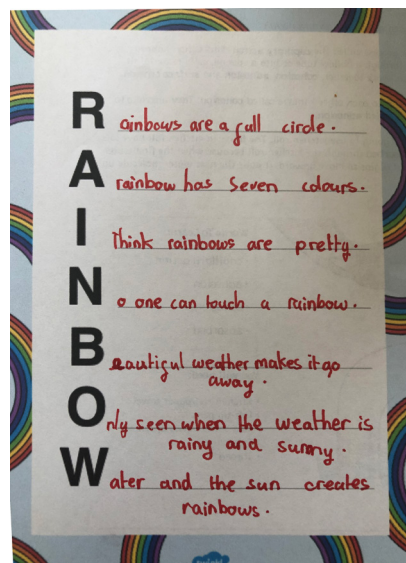 Rainbows are a full circle.
A rainbow has seven colours.
I Think rainbows are pretty.
No one can touch a rainbow.
Beautiful weather makes it go
away.
Only seen when the weather is
rainy and sunny.
Water and the sun creates
rainbows.